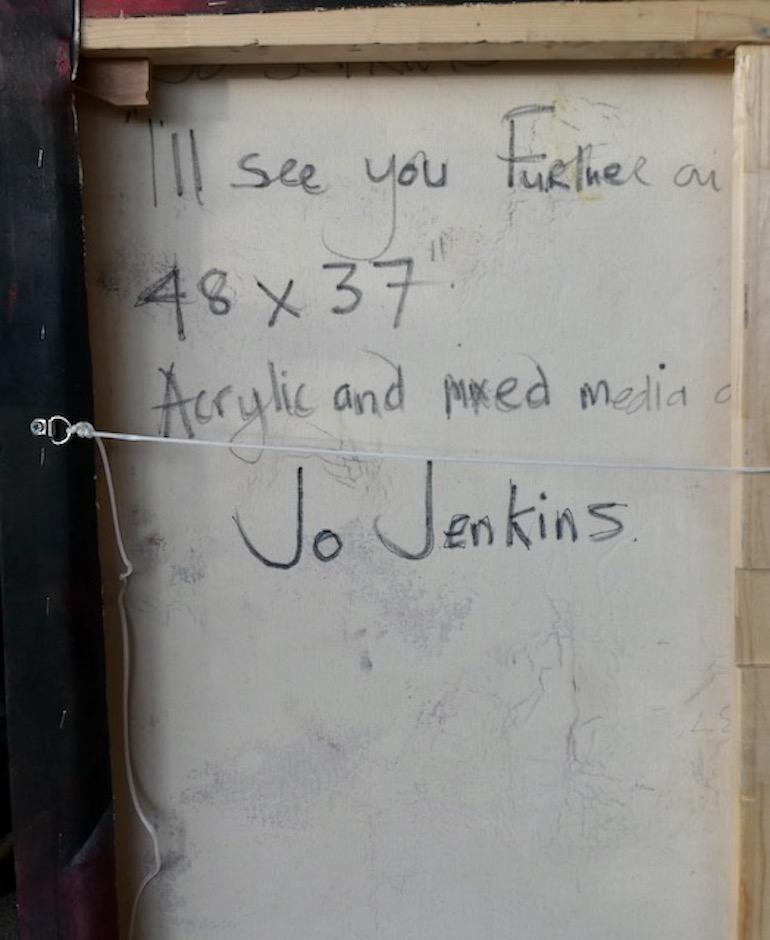 "I'll see you Further on
48 x 37".
Acrylic and mixed media
Jo Jenkins.